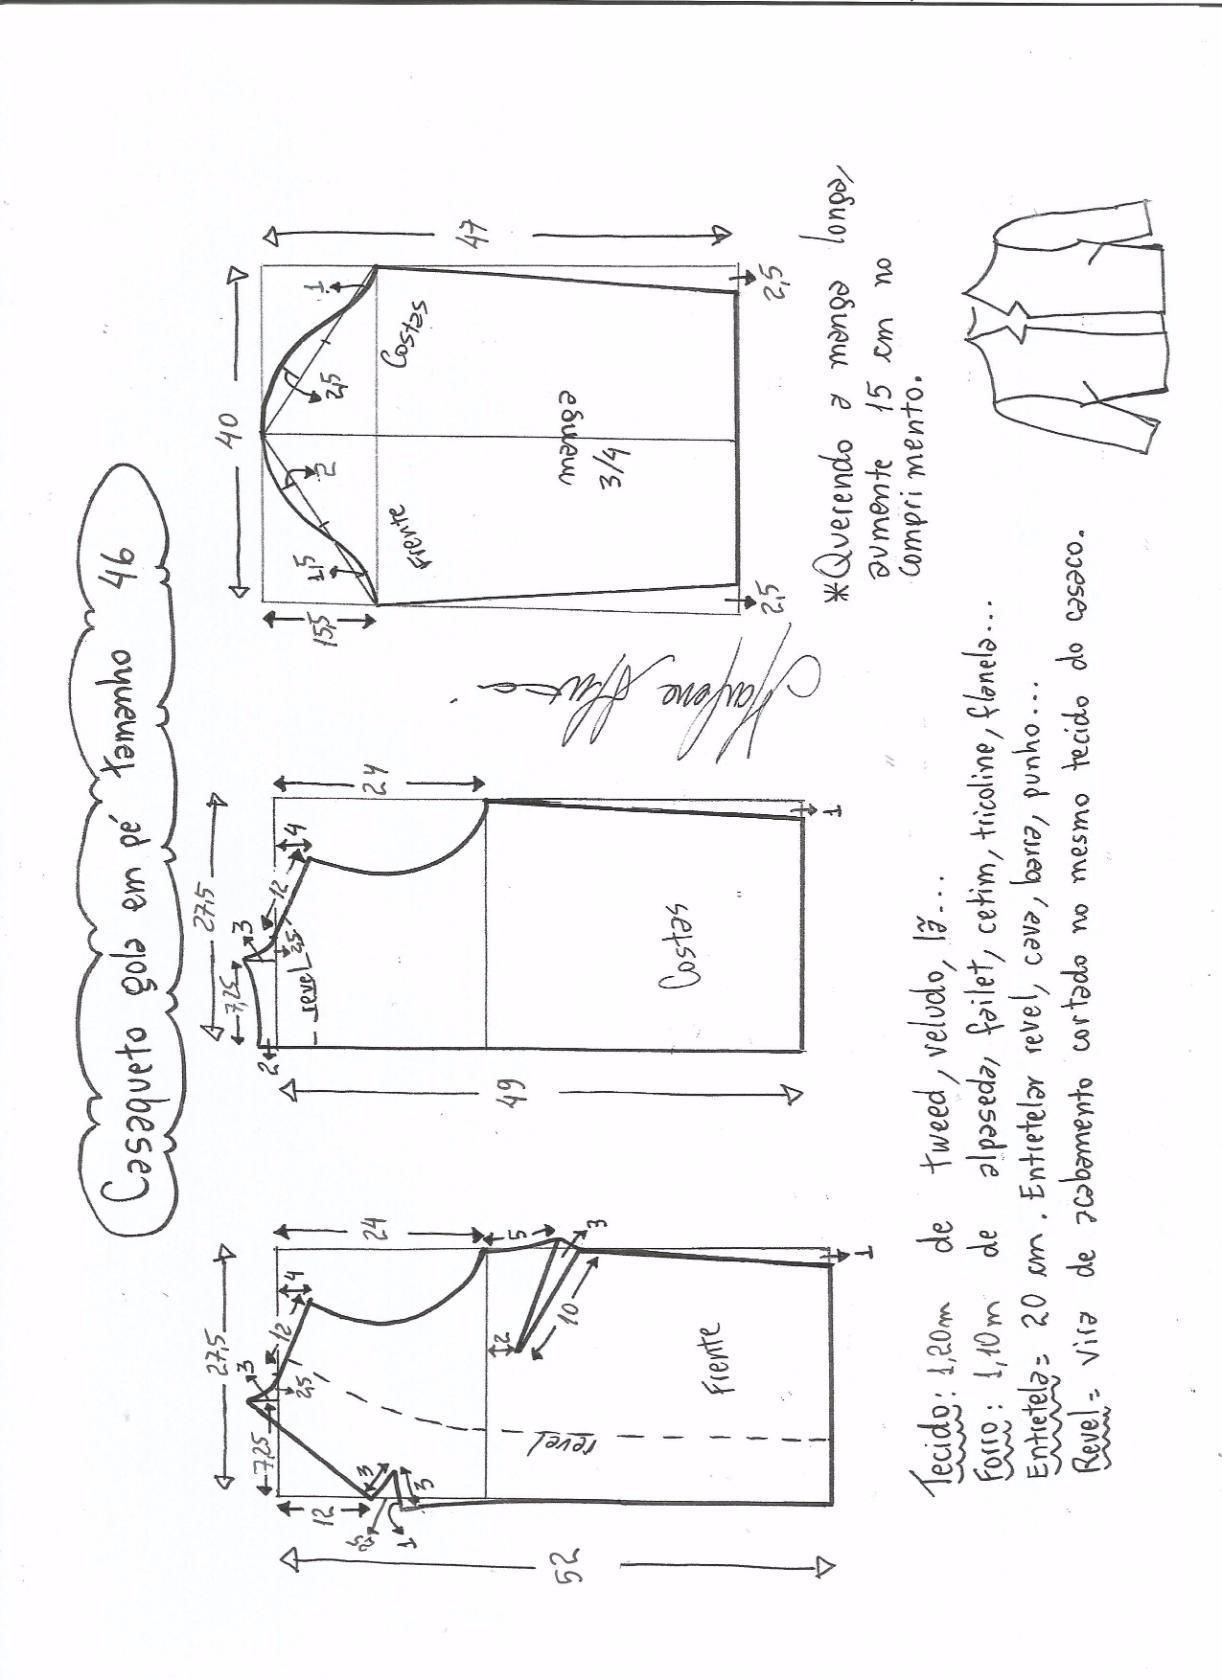 Casaqueto gola em pé tamanho 46
27,5
7,25
3
12
4
2,5
24
12
2,5
1
3
3
revel
5
3
2
10
Frente
52
1
27,5
7,25
3
12
4
2
2,5
revel
24
Costas
49
1
40
15,5
1,5
2
2,5
1
Frente
Costas
manga
3/4
47
2,5
2,5
Marlene Mukai
*Querendo a manga longa,
aumente 15 cm no
comprimento.
Tecido: 1,20m de tweed, veludo, lã...
Forro: 1,10m de alpaseda, failet, cetim, tricoline, flanela...
Entretela= 20 cm. Entretelar revel, cava, barra, punho...
Revel= vira de acabamento cortado no mesmo tecido do casaco.